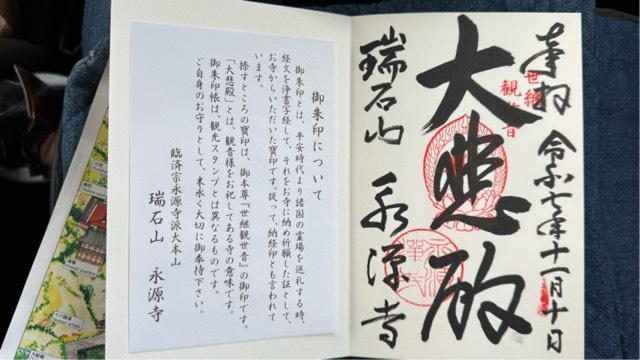 奉拝 令和七年十一月十日
世継
観世音
大悲殿
瑞石山 永源寺
御朱印について
御朱印とは、平安時代より諸国の霊場を巡礼する時、
経文を浄書写経して、それをお寺に納め祈願した証として、
お寺からいただいた宝印です。従って、納経印とも言われて
います。
捺すところの寳印は、御本尊『世継観世音』の御印です。
「大悲殿」とは、観音様をお祀してある寺の意味です。
御朱印帳は、観光スタンプとは異なるものです。
ご自身のお守りとして、末永く大切に御奉持下さい。
臨済宗永源寺派大本山
瑞石山 永源寺